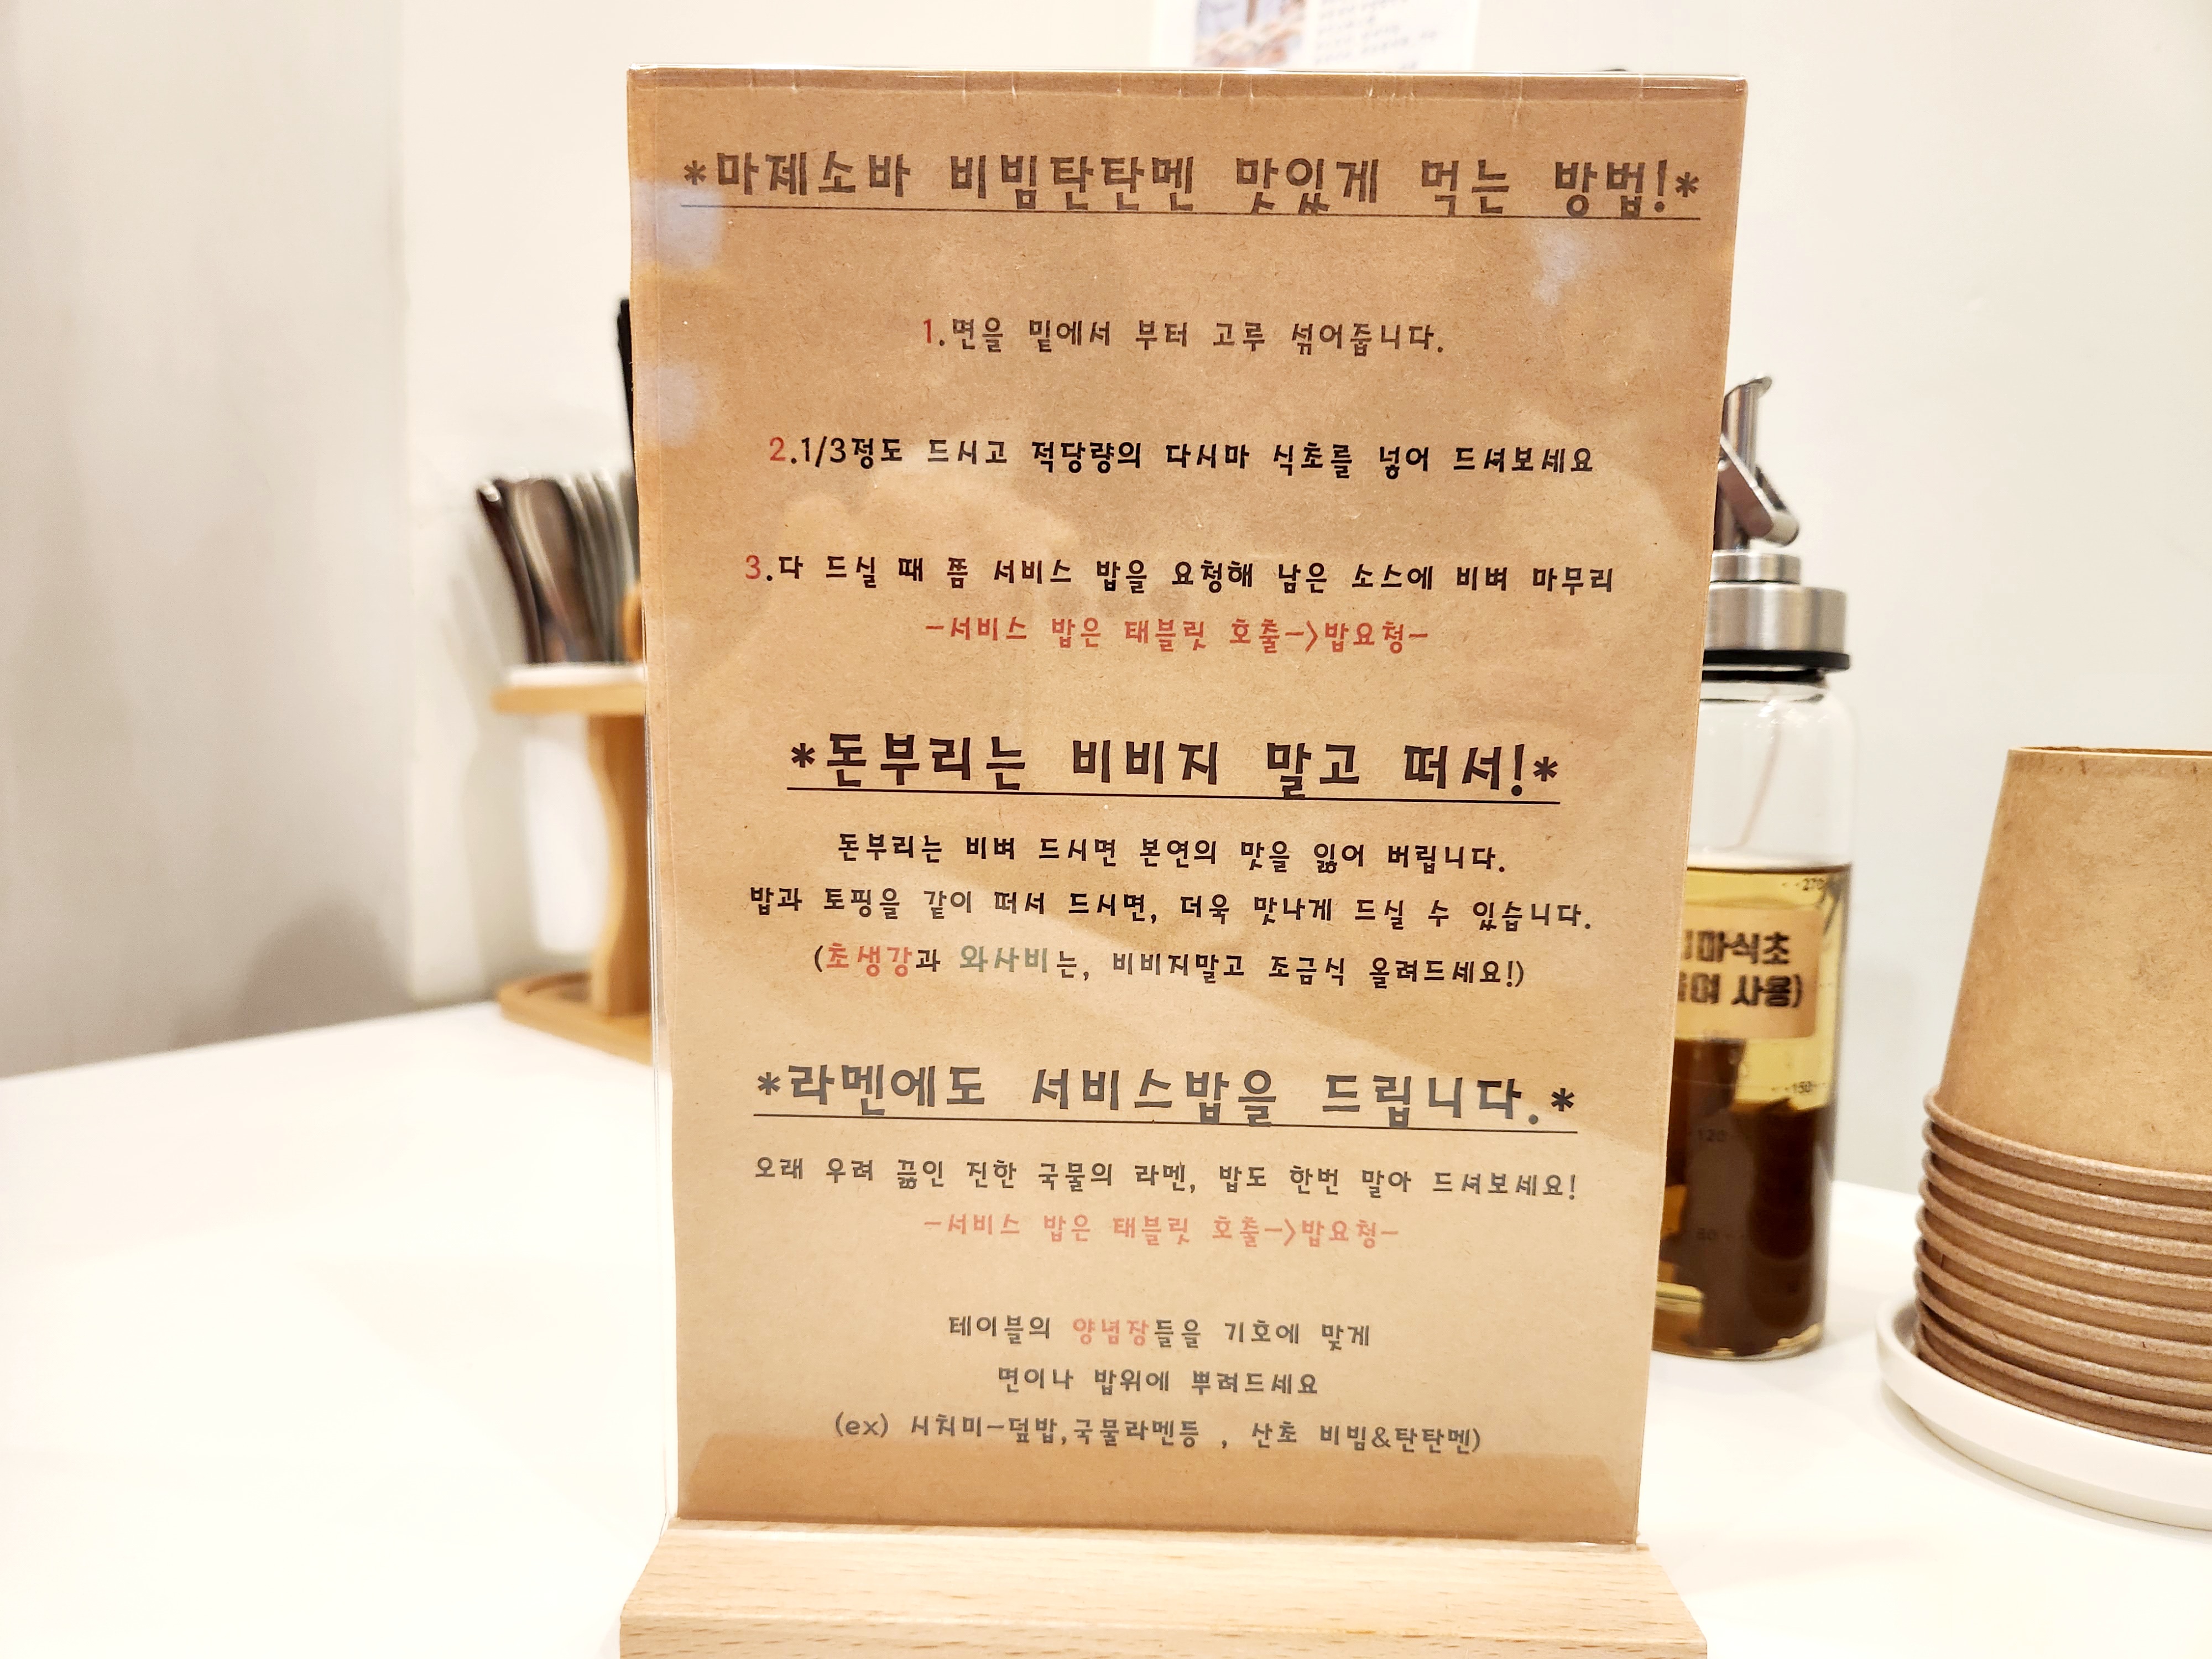 *마제소바 비빔탄탄멘 맛있게 먹는 방법!*
1.면을 밑에서 부터 고루 섞어줍니다.
2.1/3정도 드시고 적당량의 다시마 식초를 넣어 드셔보세요
3.다 드실 때 쯤 서비스 밥을 요청해 남은 소스에 비벼 마무리
-서비스 밥은 태블릿 호출->밥요청-
*돈부리는 비비지 말고 떠서!*
돈부리는 비벼 드시면 본연의 맛을 잃어 버립니다.
밥과 토핑을 같이 떠서 드시면, 더욱 맛나게 드실 수 있습니다.
(초생강과 와사비는, 비비지말고 조금식 올려드세요!)
*라멘에도 서비스밥을 드립니다.*
오래 우려 끓인 진한 국물의 라멘, 밥도 한번 말아 드셔보세요!
-서비스 밥은 태블릿 호출->밥요청-
테이블의 양념장들을 기호에 맞게
면이나 밥위에 뿌려드세요
(ex) 시치미-덮밥,국물라멘등 , 산초 비빔&탄탄멘)
마식초
사용)
270
150
120